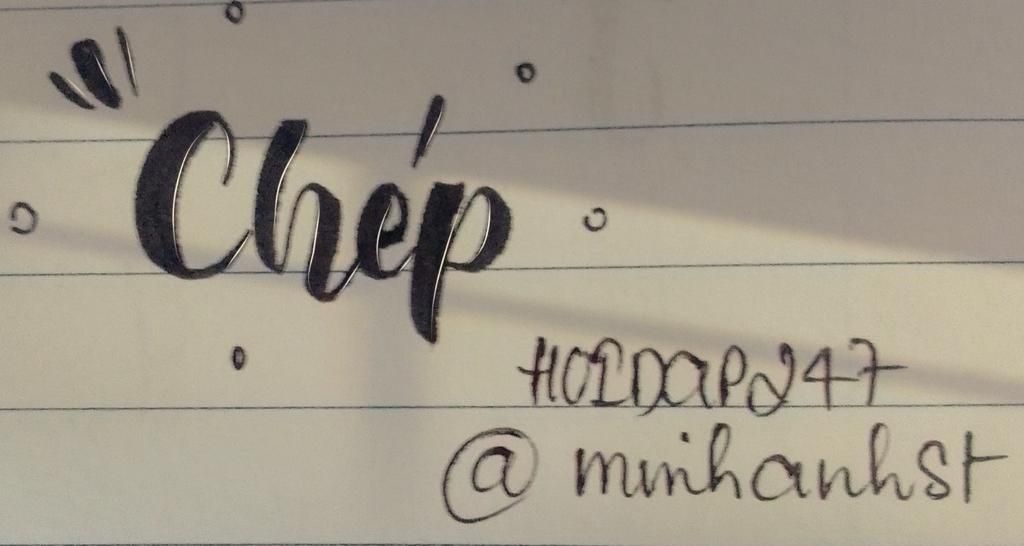 Chép
HOIDAP247
@minhanhst